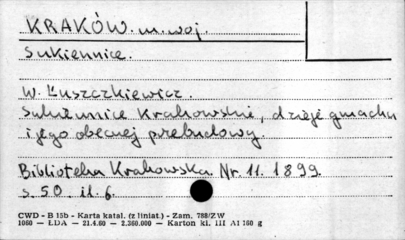 KRAKÓW. m. woj.
Sukiennice.
W. Łuszczkiewicz.
Sukiennice Krakowskie, dzieje gmachu
i jego obecnej przebudowy.
Biblioteka Krakowska Nr. 11. 1899.
s. 50. il. 6.
CWD - B 15b - Karta katal. (z liniat.) - Zam. 788/ZW
1060 — ŁDA — 21.4.60 — 2.360.000 — Karton kl. III A1 160 g